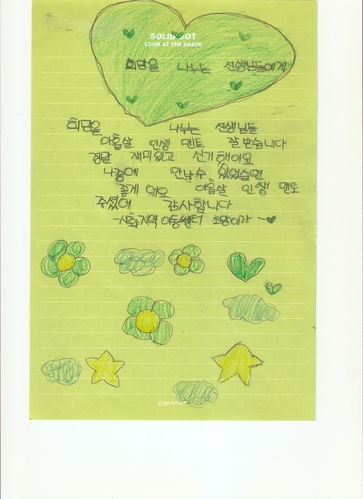 SOLID DOT
LOOK AT THE SHADE
희망을 나누는 선생님들에게
희망을 나누는 선생님들
아홉살 인생 멘토 잘 받습니다
정말 재미있고 신기해어요
나중에 만나수 있있슬면
좋게 써요 아홉살 인생 멘토
주셨어 감사합니다
지역 아동쎈터